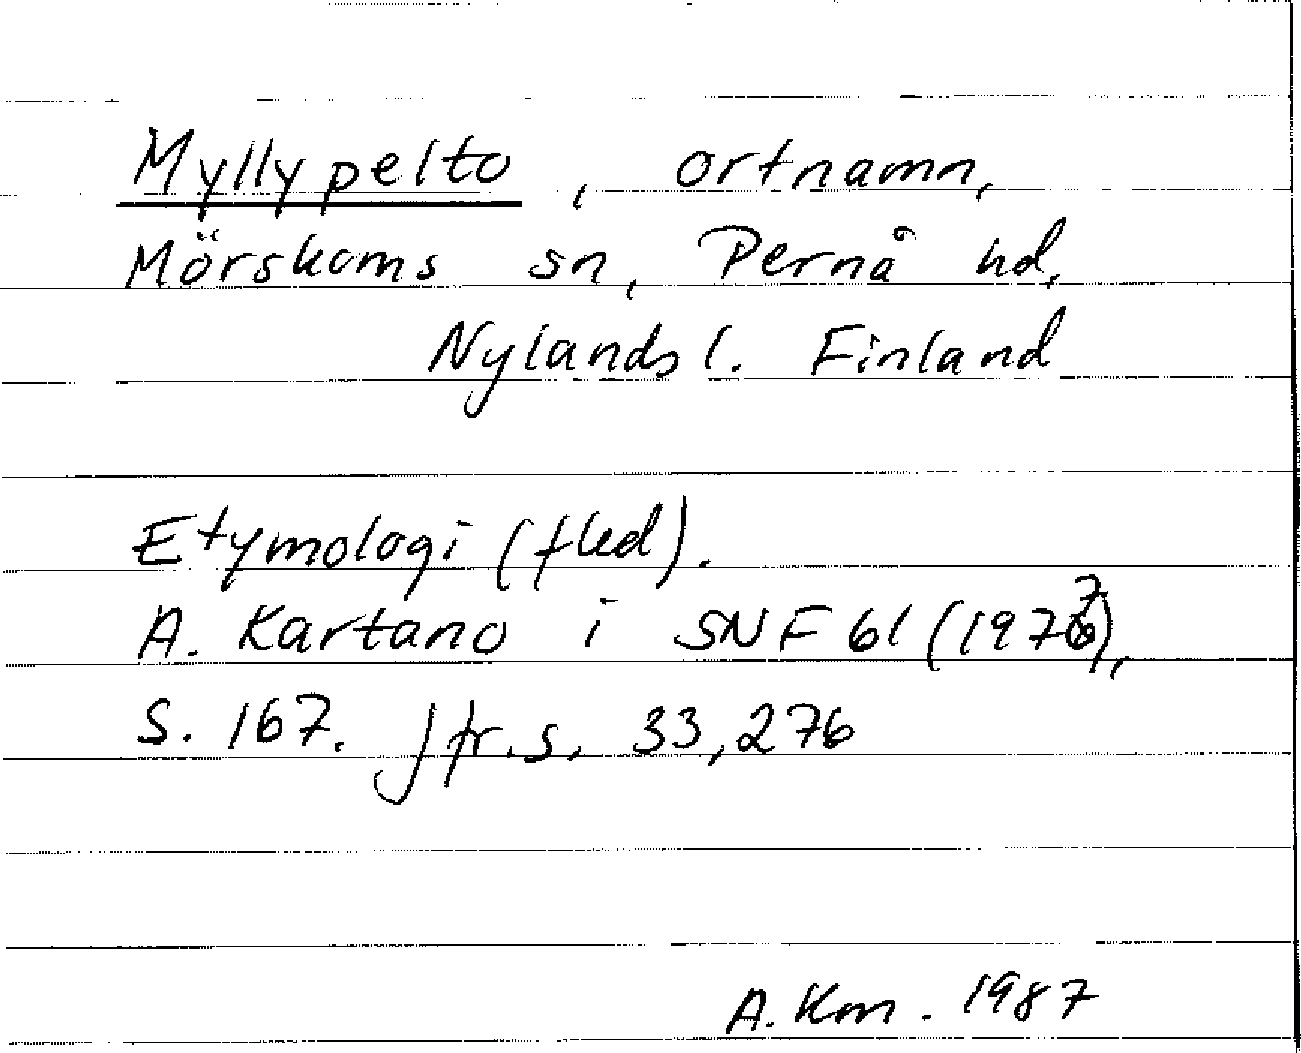 Myllypelto, ortnamn,
Mörskoms sn, Pernå hd,
Nylands l. Finland
Etymologi (fled).
A. Kartano i SNF 61 (1977),
S. 167. Jfr. s. 33, 276
A. Km. 1987